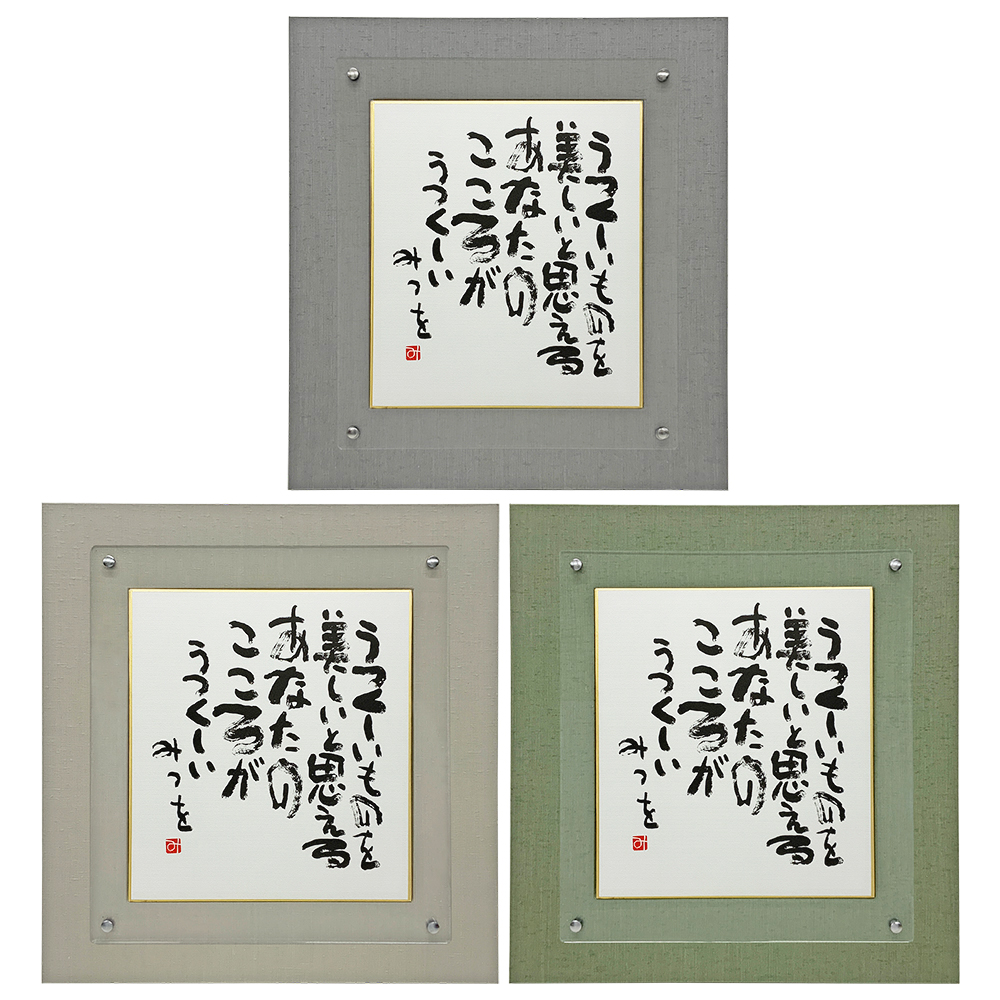 うつくしいものを
美しいと思える
あなたの
こころが
うつくしい
みつを
み
うつくしいものを
美しいと思える
あなたの
こころが
うつくしい
みつを
み
うつくしいものを
美しいと思える
あなたの
こころが
うつくしい
みつを
み